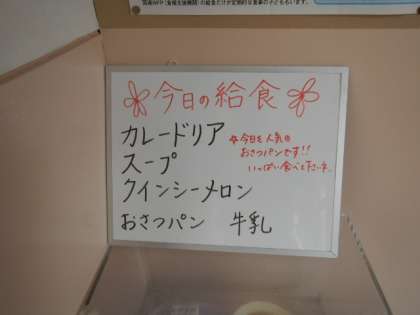 今日の給食
カレードリア
スープ
クインシーメロン
おさつパン 牛乳
今日は人気の
おさつパンです!!
いっぱい食べて下さいネ。